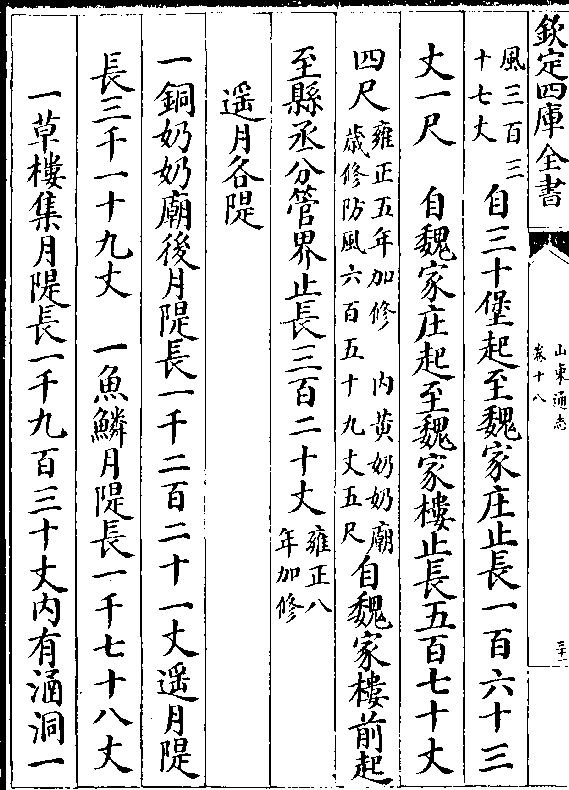 欽定四庫全書
山東通志
卷十八
風三百三
十七丈
自三十堡起至魏家庄止長一百六十三
丈一尺 自魏家庄起至魏家樓止長五百七十丈
四尺
雍正五年加修 内黄奶奶廟
歲修防風六百五十九丈五尺
自魏家樓前起
至縣丞分管界止長三百二十丈
雍正八
年加修
遥月各隄
一銅奶奶廟後月隄長一千二百二十一丈遥月隄
長三千一十九丈 一魚鱗月隄長一千七十八丈
一草樓集月隄長一千九百三十丈内有涵洞一